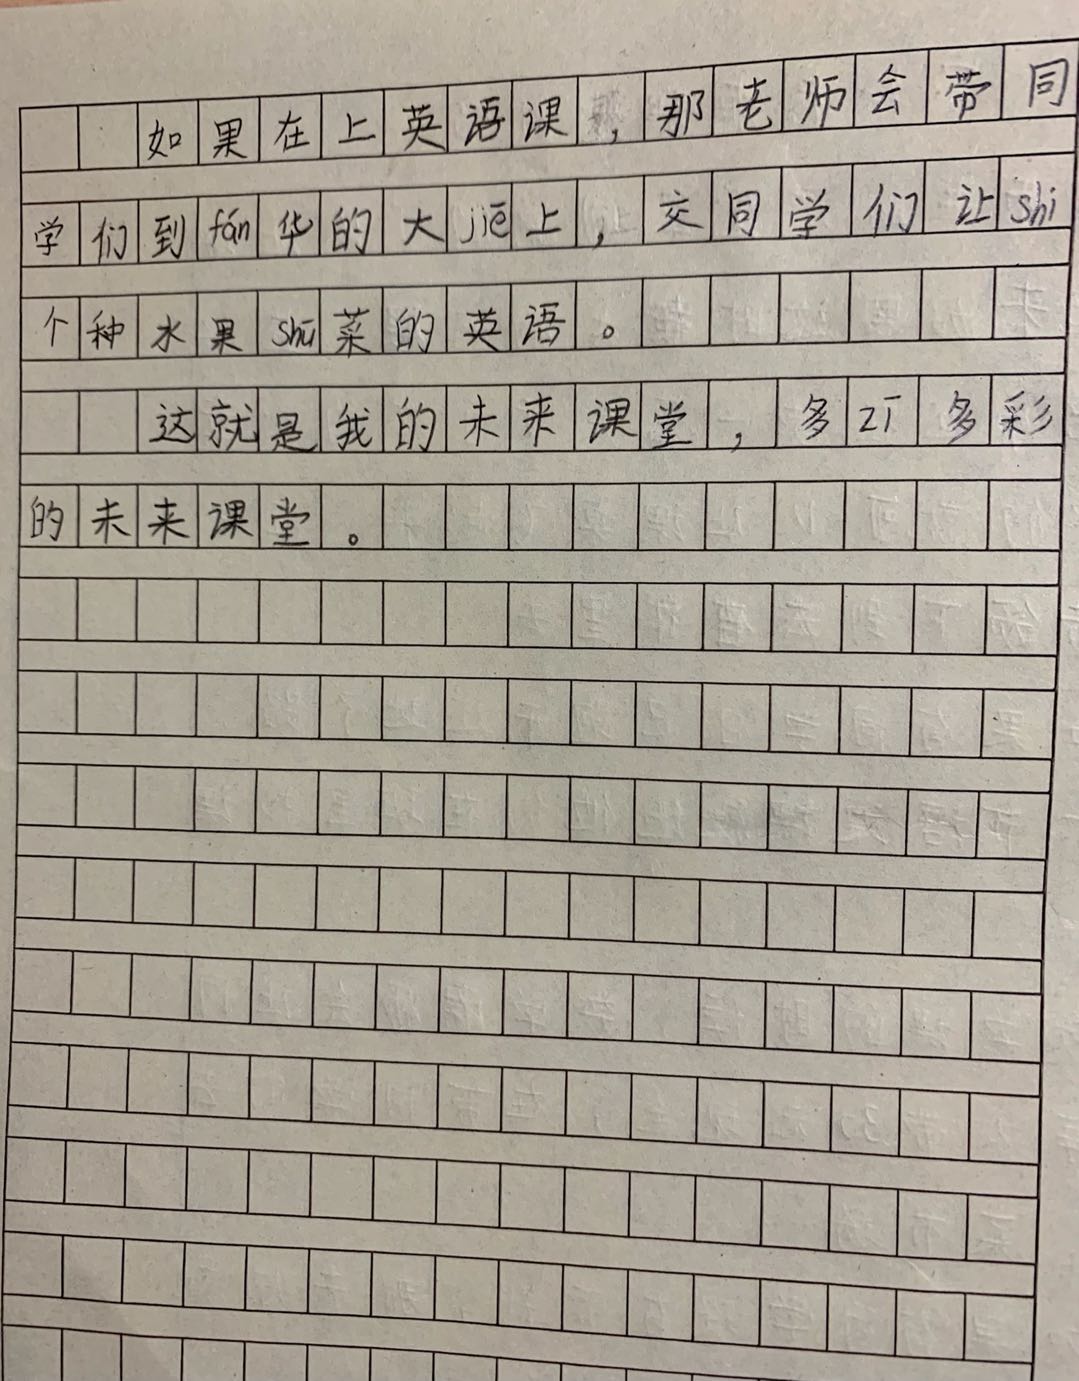 如果在上英语课，那老师会带同
学们到fán华的大jiē上，交同学们让shi
个种水果shū菜的英语。
这就是我的未来课堂，多zī多彩
的未来课堂。